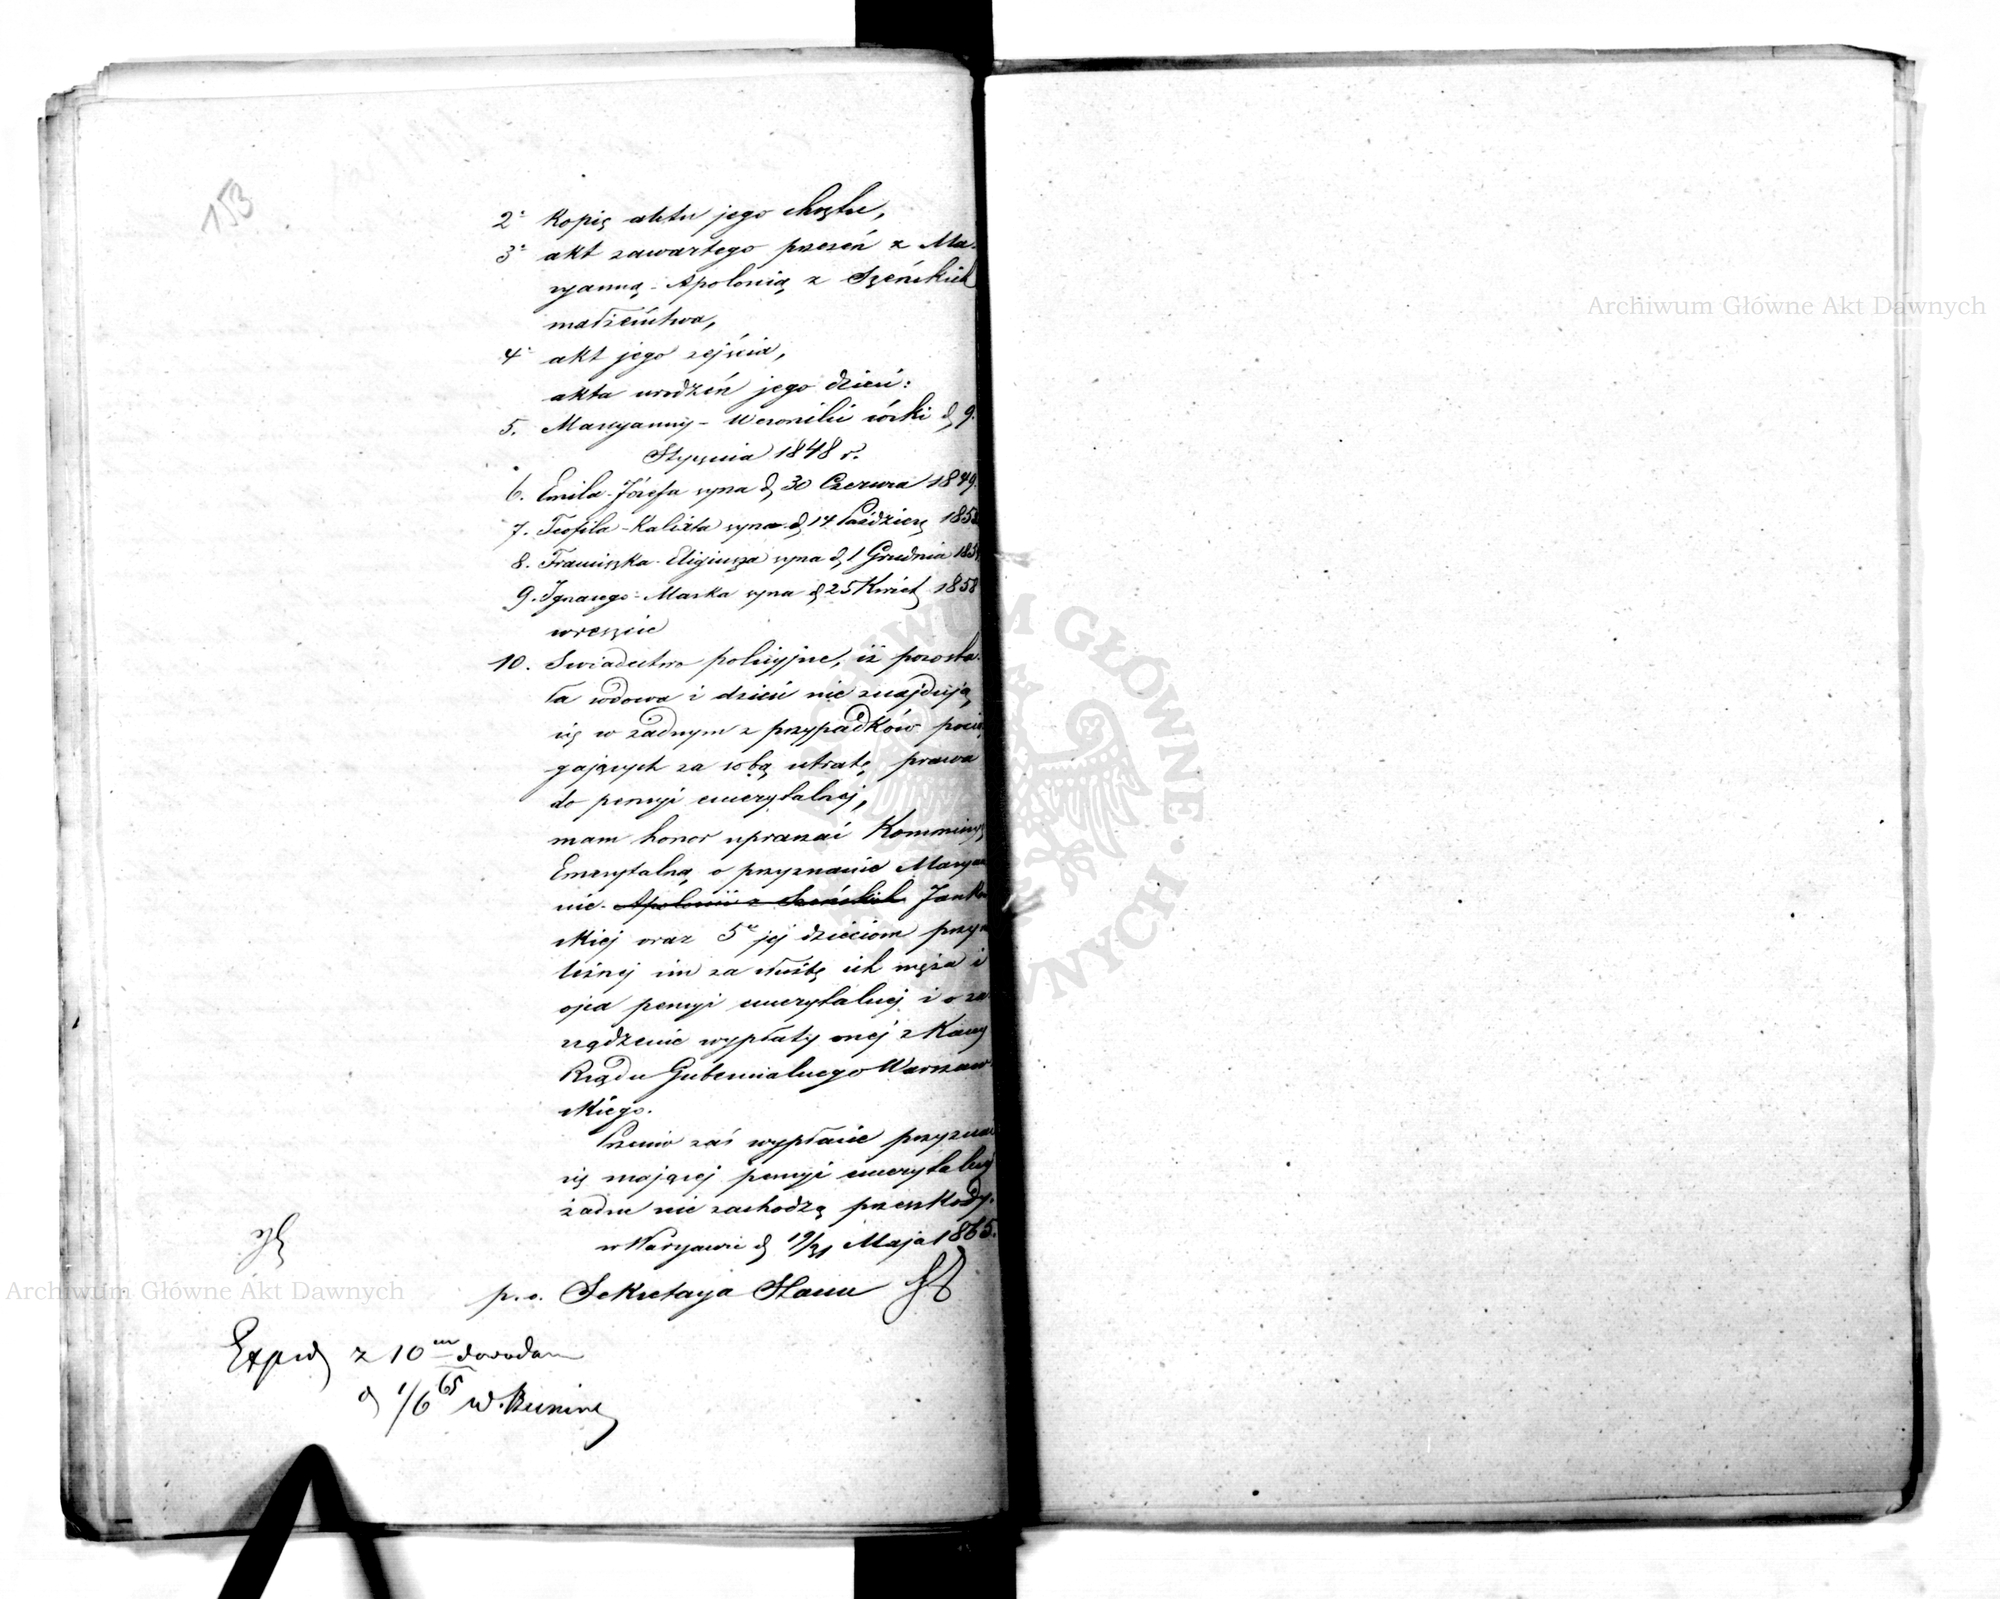 153
2. Kopię aktu jego chrztu,
3. akt zawartego przezeń z Ma-
ryanną-Apolonią z Szeńskich
małżeństwa,
4. akt jego zejścia,
akta urodzeń jego dzieci:
5. Maryanny-Weroniki córki d. 9.
Stycznia 1848 r.
6. Emila-Józefa syna d. 30 Czerwca 1849.
7. Teofila-Kalixta syna d. 14 Paździer.
8. Franciszka-Eligiusza syna d. 1 Grudnia
9. Ignacego-Marka syna d. 25 Kwiet. 1858
wreszcie
10. Swiadectwo policyjne, iż pozosta-
ła wdowa i dzieci nie znajdują
się w żadnym z przypadków pocią
gających za sobą utratę prawa
do pensyi emerytalnej,
mam honor upraszać Kommissyę
Emerytalną o przyznanie Maryan
nie Apolonii z Szeńskich Janko
skiej oraz 5r jej dzieciom przyn
leżnej im za służbę ich męża i
ojca pensyi emerytalnej i o za
rządzenie wypłaty onej z Kassy
Rządu Gubernialnego Warszaw
skiego.
Przeciw zaś wypłacie przyznać
się mającej pensyi emerytalnej
żadne nie zachodzą przeszkody.
w Warszawie d. 19/31 Maja 1865.
p.o. Sekretarza Stanu
Exped z 10m dowodam
d 1/6 65
Archiwum Główne Akt Dawnych
Archiwum Główne Akt Dawnych
ARCHIWUM GŁÓWNE AKT DAWNYCH